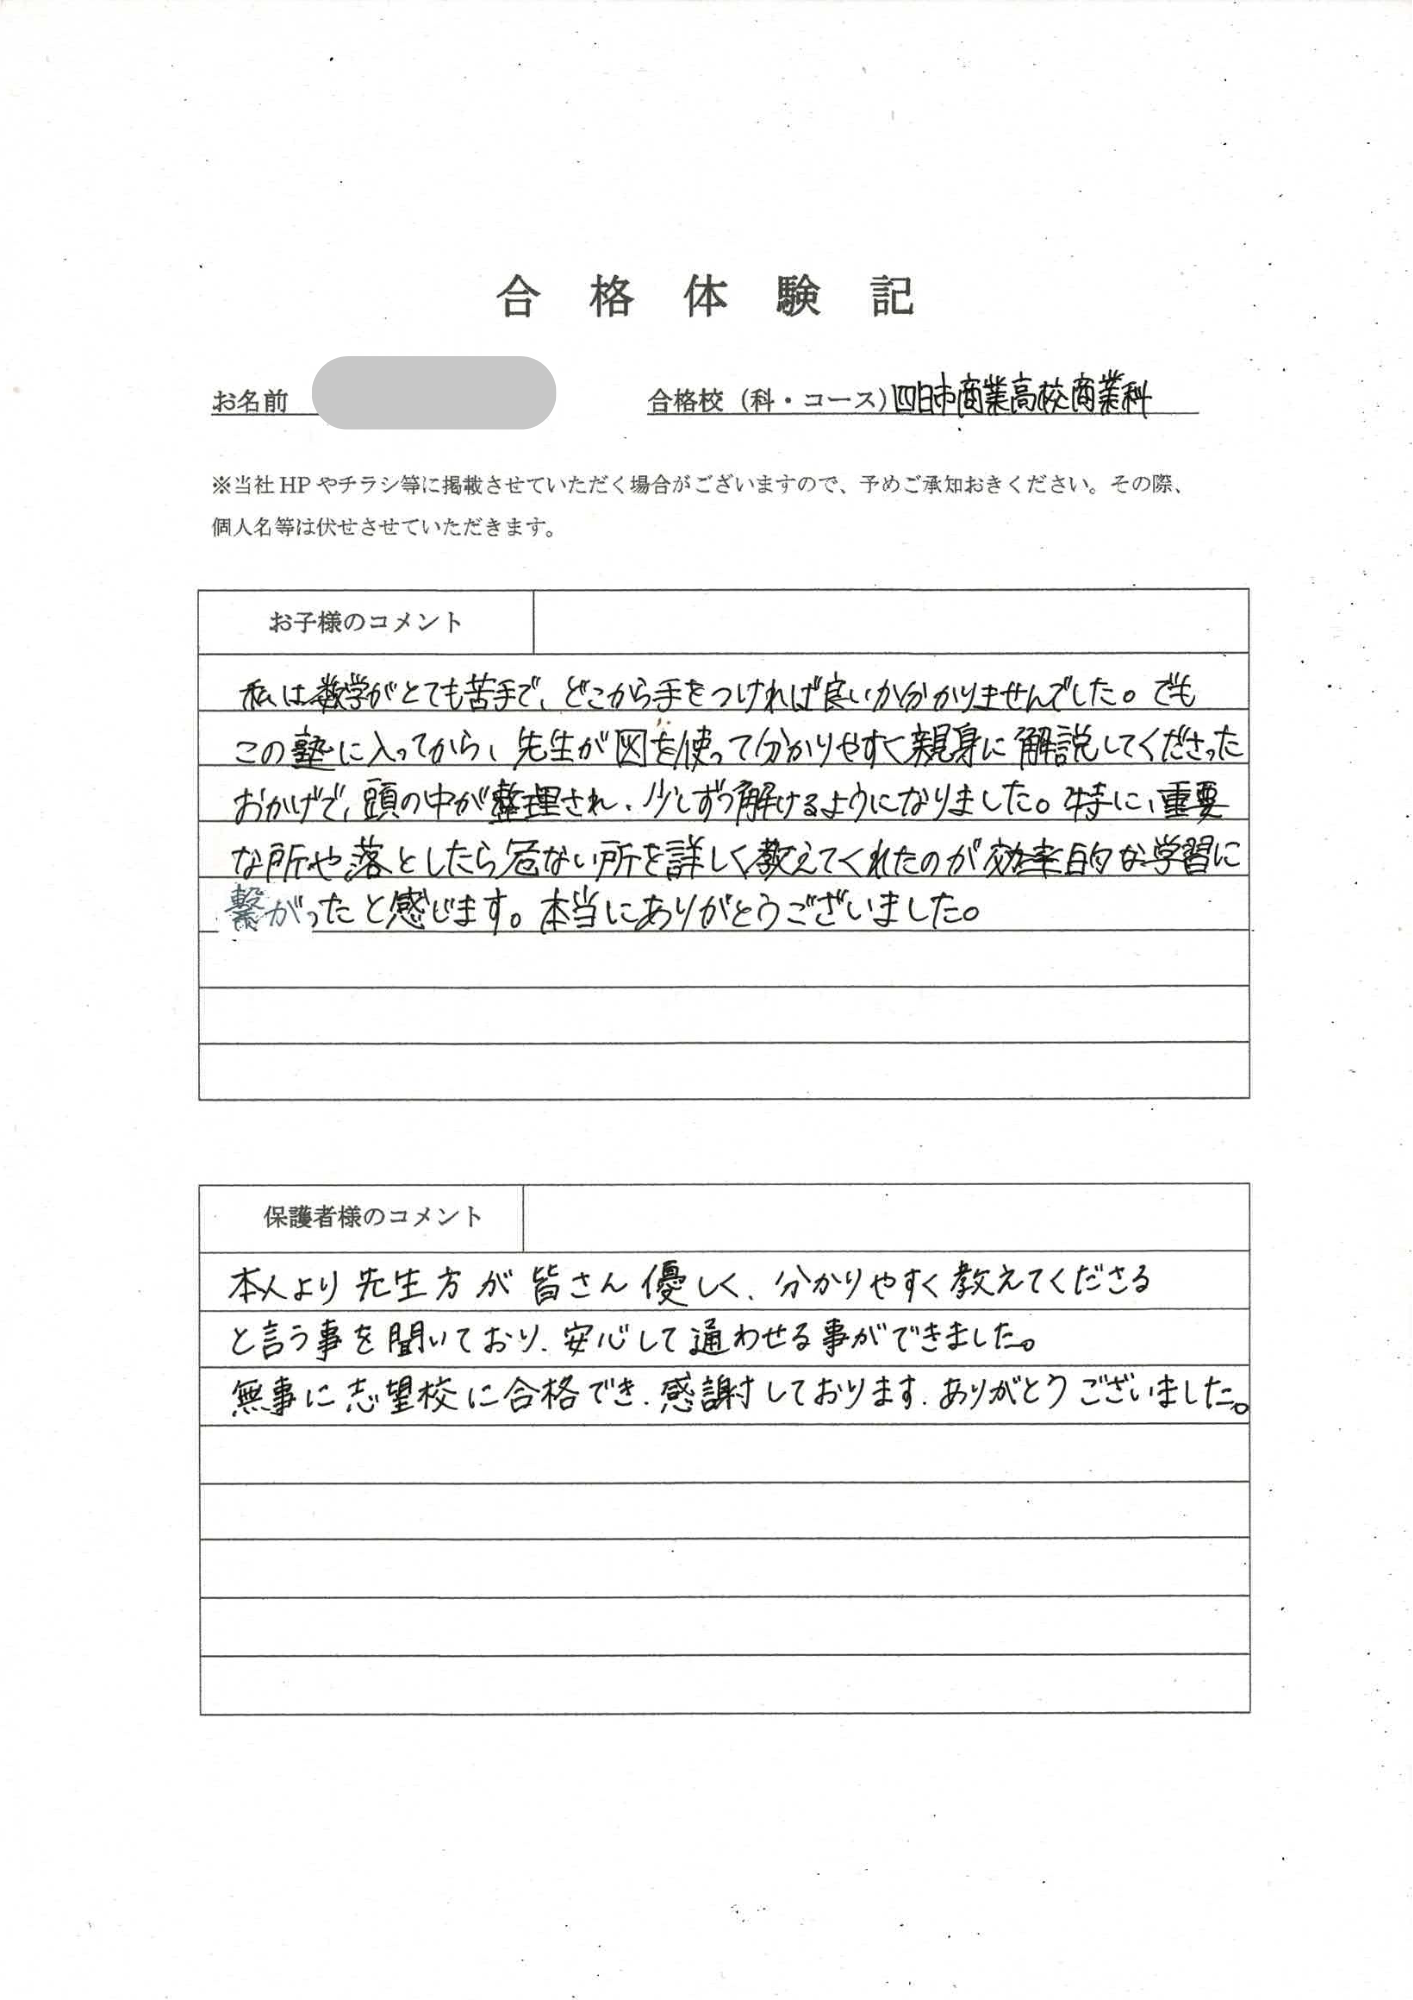 合格体験記
お名前
合格校（科・コース）四日市商業高校商業科
※当社HPやチラシ等に掲載させていただく場合がございますので、予めご承知おきください。その際、
個人名等は伏せさせていただきます。
お子様のコメント
私は数学がとても苦手で、どこから手をつければ良いか分かりませんでした。でも
この塾に入ってから、先生が図を使って分かりやすく親身に解説してくださった
おかげで、頭の中が整理され、少しずつ解けるようになりました。特に、重要
な所や落としたら危ない所を詳しく教えてくれたのが効率的な学習に
繋がったと感じます。本当にありがとうございました。
保護者様のコメント
本人より先生方が皆さん優しく、分かりやすく教えてくださる
と言う事を聞いており、安心して通わせる事ができました。
無事に志望校に合格でき、感謝しております。ありがとうございました。